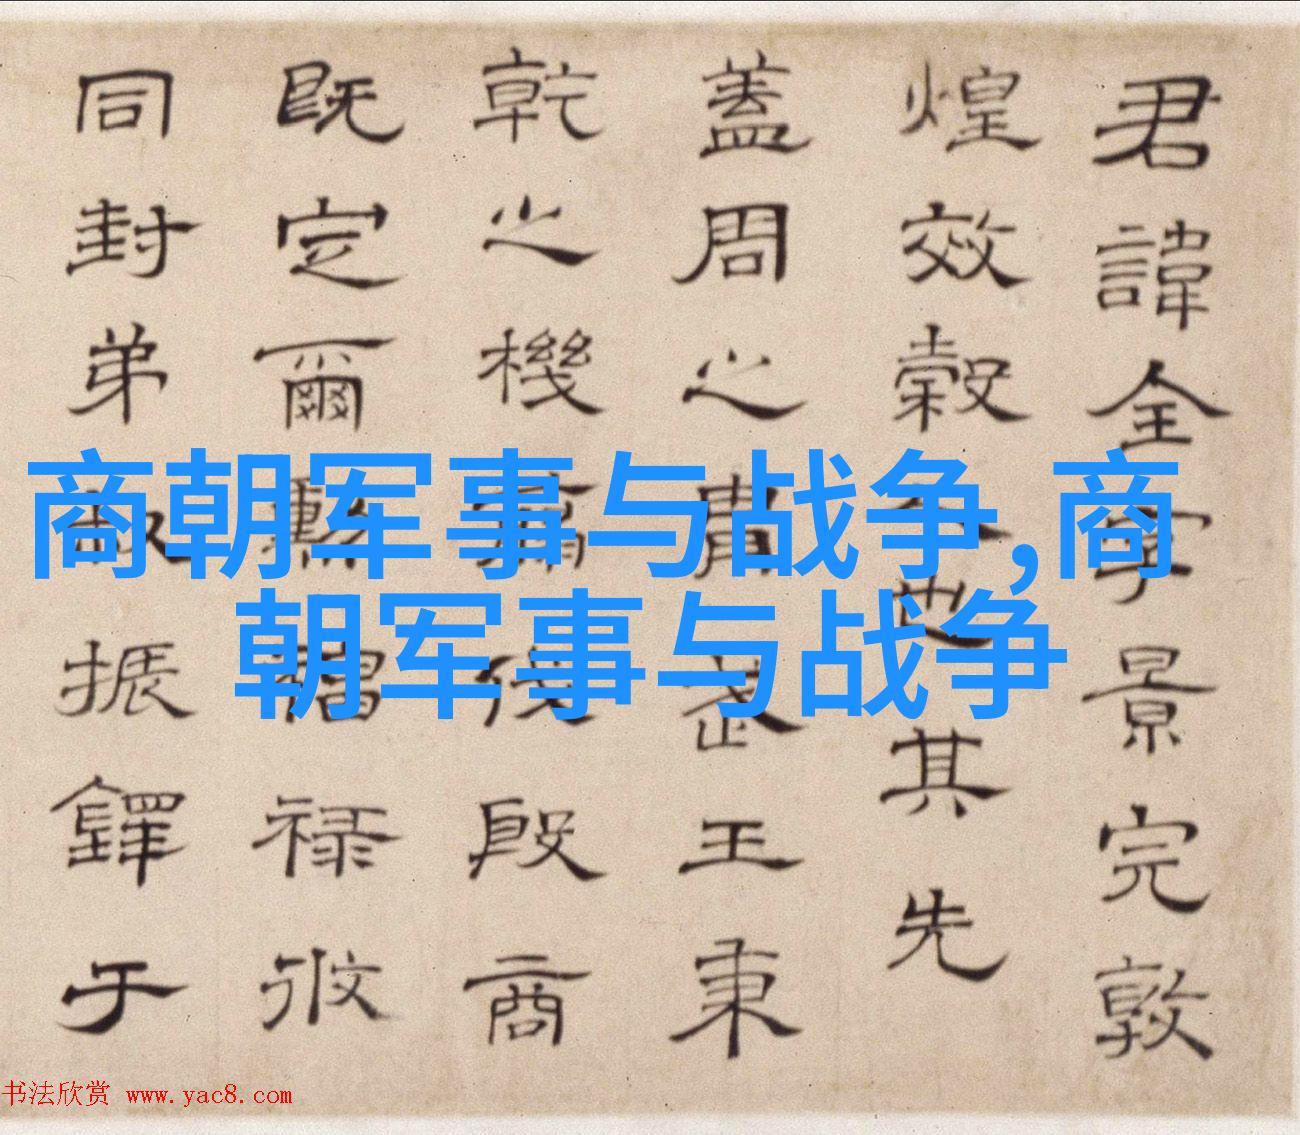 君諱全字景完敦
煌效穀人也其先
蓋周之胄武王秉
乾之機翦伐殷商
既定爾勳福祿攸
同封弟叔振鐸于
商朝军事与战争,商
朝军事与战争
书法欣赏 www.yac8.com